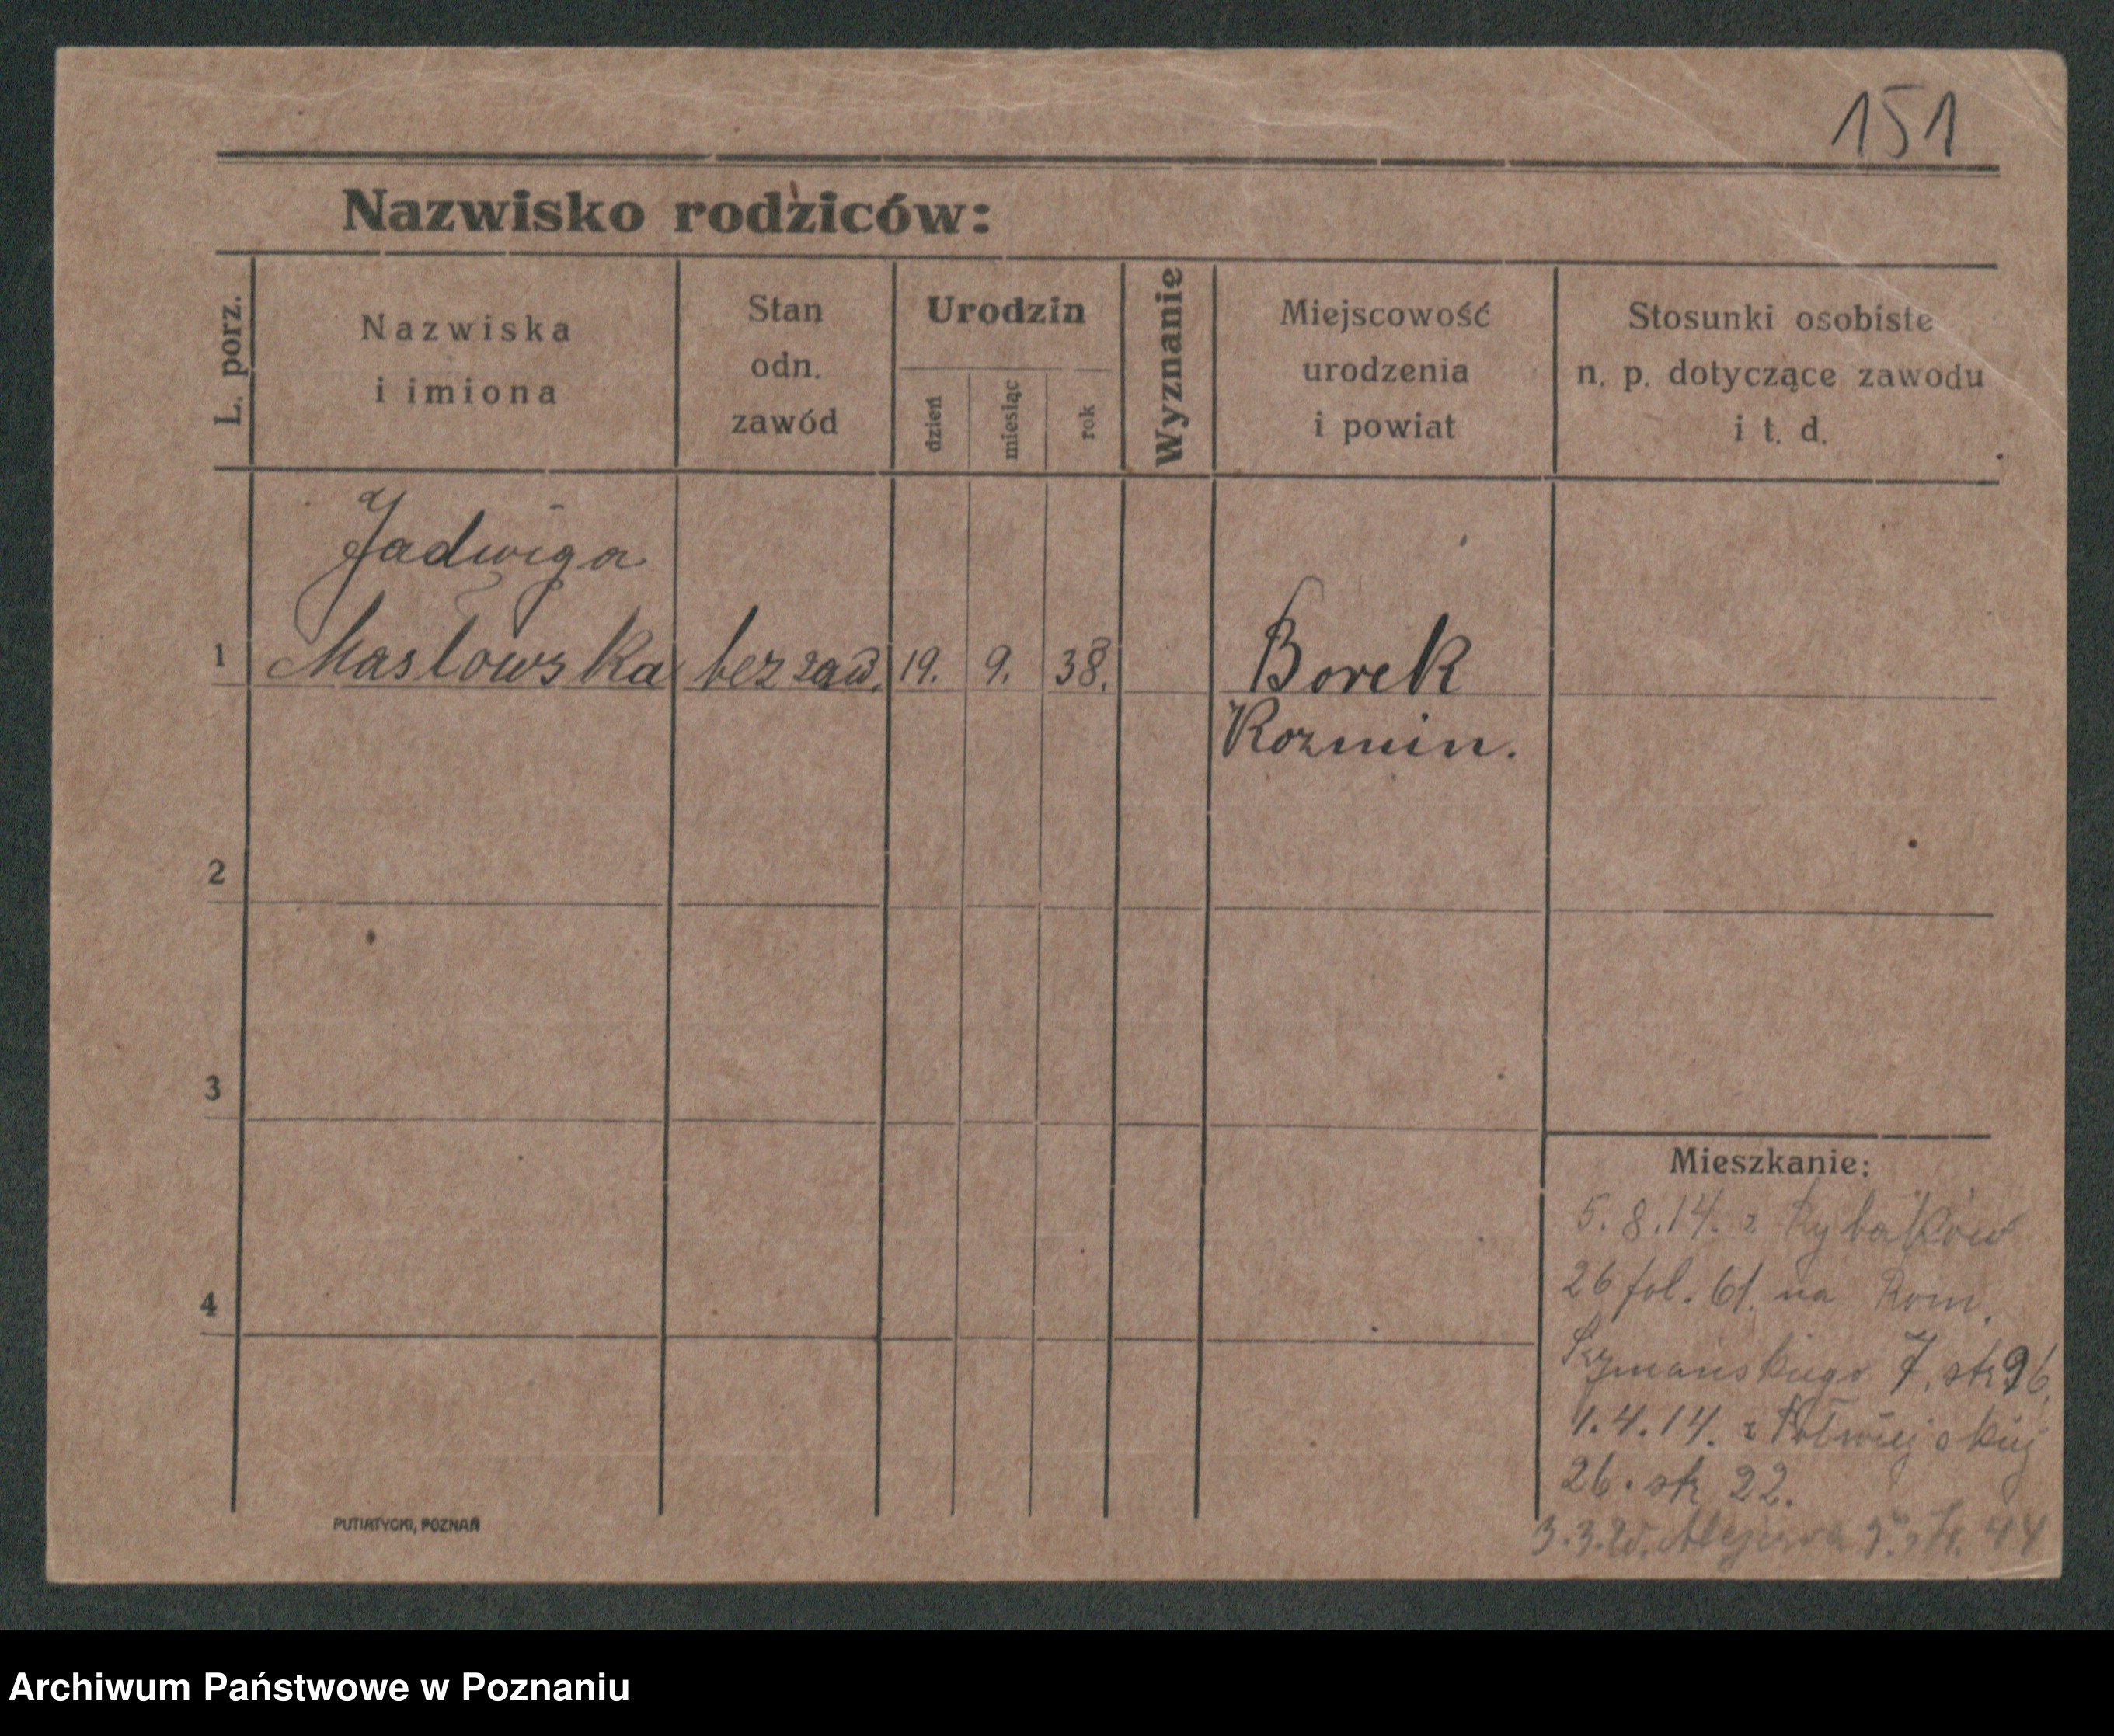 151
Nazwisko rodziców:
L. porz.
Nazwiska
i imiona
Stan
odn.
zawód
Urodzin
dzień
miesiąc
rok
Wyznanie
Miejscowość
urodzenia
i powiat
Stosunki osobiste
n. p. dotyczące zawodu
i t. d.
Jadwiga
1 Masłowska bez zaw. 19. 9. 38. Borek
Kozmin.
2
3
4
Mieszkanie:
5.8.14. z Rybaków
26 fol. 61. na Rom.
Szymańskiego 7. str 96.
1.4.14. z Półwiejskiej
26. str 22.
3.3. 44
PUTIATYCKI, POZNAŃ
Archiwum Państwowe w Poznaniu